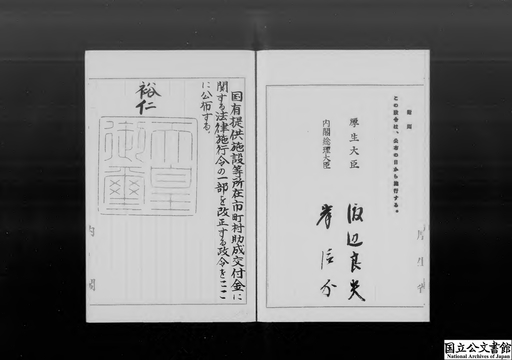 附則
この政令は、公布の日から施行する。
厚生大臣 渡辺良夫
内閣総理大臣 岸信介
国有提供施設等所在市町村助成交付金に
関する法律施行令の一部を改正する政令をここ
に公布する。
裕仁
天皇
御璽
内閣
国立公文書館
National Archives of Japan